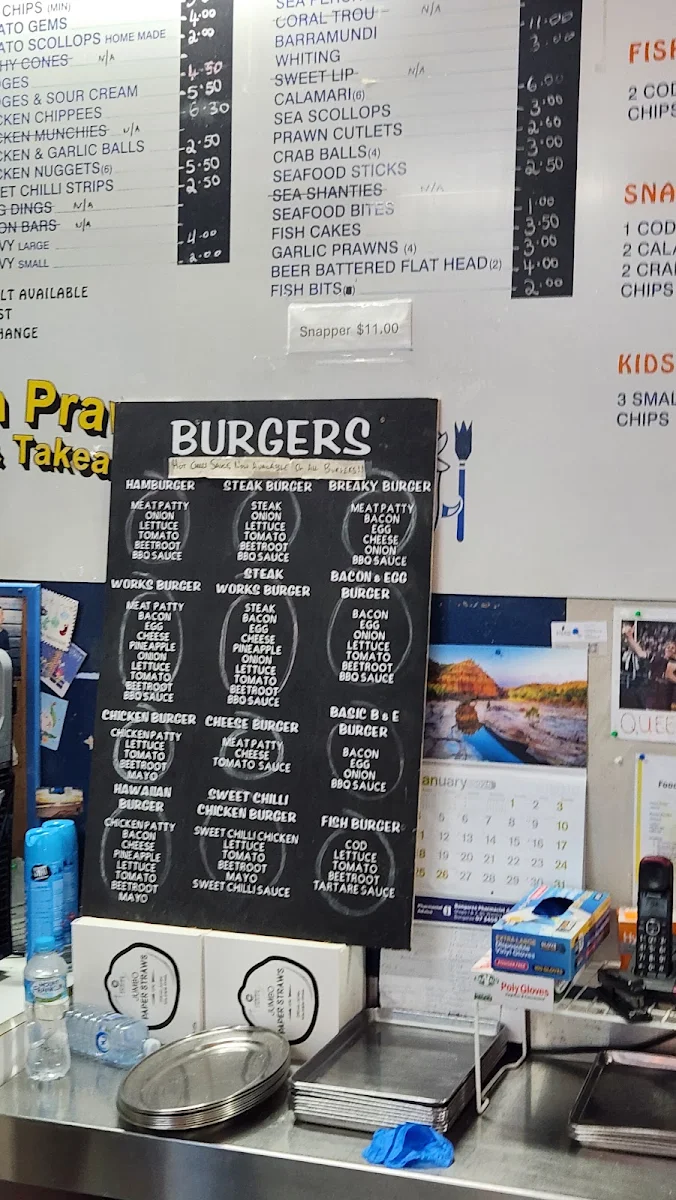 CHIPS (MIN)
ATO GEMS 4.00
ATO SCOLLOPS HOME MADE 2.00
HY CONES N/A
GES 4.50
GES & SOUR CREAM 5.50
KEN CHIPPEES 6.30
KEN MUNCHIES N/A
KEN & GARLIC BALLS 2.50
KEN NUGGETS(6) 5.50
ET CHILLI STRIPS 2.50
G DINGS N/A
ON BARS N/A
VY LARGE 4.00
VY SMALL 2.00
LT AVAILABLE
ST
HANGE
CORAL TROU N/A
BARRAMUNDI 11.00
WHITING 3.00
SWEET LIP N/A
CALAMARI(6) 6.00
SEA SCOLLOPS 3.00
PRAWN CUTLETS 2.60
CRAB BALLS(4) 3.00
SEAFOOD STICKS 2.50
SEA SHANTIES N/A
SEAFOOD BITES 1.00
FISH CAKES 3.50
GARLIC PRAWNS (4) 3.00
BEER BATTERED FLAT HEAD(2) 4.00
FISH BITS 2.00
Snapper $11.00
FISH
2 COD
CHIPS
SNA
1 COD
2 CALA
2 CRA
CHIPS
KIDS
3 SMAL
CHIPS
n Pra
& Takea
BURGERS
HOT CHILLI SAUCE NOW AVAILABLE ON ALL BURGERS!!
HAMBURGER
MEAT PATTY
ONION
LETTUCE
TOMATO
BEETROOT
BBQ SAUCE
STEAK BURGER
STEAK
ONION
LETTUCE
TOMATO
BEETROOT
BBQ SAUCE
BREAKY BURGER
MEAT PATTY
BACON
EGG
CHEESE
ONION
BBQ SAUCE
WORKS BURGER
MEAT PATTY
BACON
EGG
CHEESE
PINEAPPLE
ONION
LETTUCE
TOMATO
BEETROOT
BBQ SAUCE
STEAK
WORKS BURGER
STEAK
BACON
EGG
CHEESE
PINEAPPLE
ONION
LETTUCE
TOMATO
BEETROOT
BBQ SAUCE
BACON & EGG
BURGER
BACON
EGG
ONION
LETTUCE
TOMATO
BEETROOT
BBQ SAUCE
CHICKEN BURGER
CHICKEN PATTY
LETTUCE
TOMATO
BEETROOT
MAYO
CHEESE BURGER
MEAT PATTY
CHEESE
TOMATO SAUCE
BASIC B & E
BURGER
BACON
EGG
ONION
BBQ SAUCE
HAWAIIAN
BURGER
CHICKEN PATTY
BACON
CHEESE
PINEAPPLE
LETTUCE
TOMATO
BEETROOT
MAYO
SWEET CHILLI
CHICKEN BURGER
SWEET CHILLI CHICKEN
LETTUCE
TOMATO
BEETROOT
MAYO
SWEET CHILLI SAUCE
FISH BURGER
COD
LETTUCE
TOMATO
BEETROOT
TARTARE SAUCE
anuary
1 2 3
5 6 7 8 9 10
12 13 14 15 16 17
19 20 21 22 23 24
25 26 27 28 29 30 31
QUEE
Food
JUMBO
PAPER STRAWS
JUMBO
PAPER STRAWS
EXTRA LARGE
Disposable
Vinyl Gloves
Poly Gloves